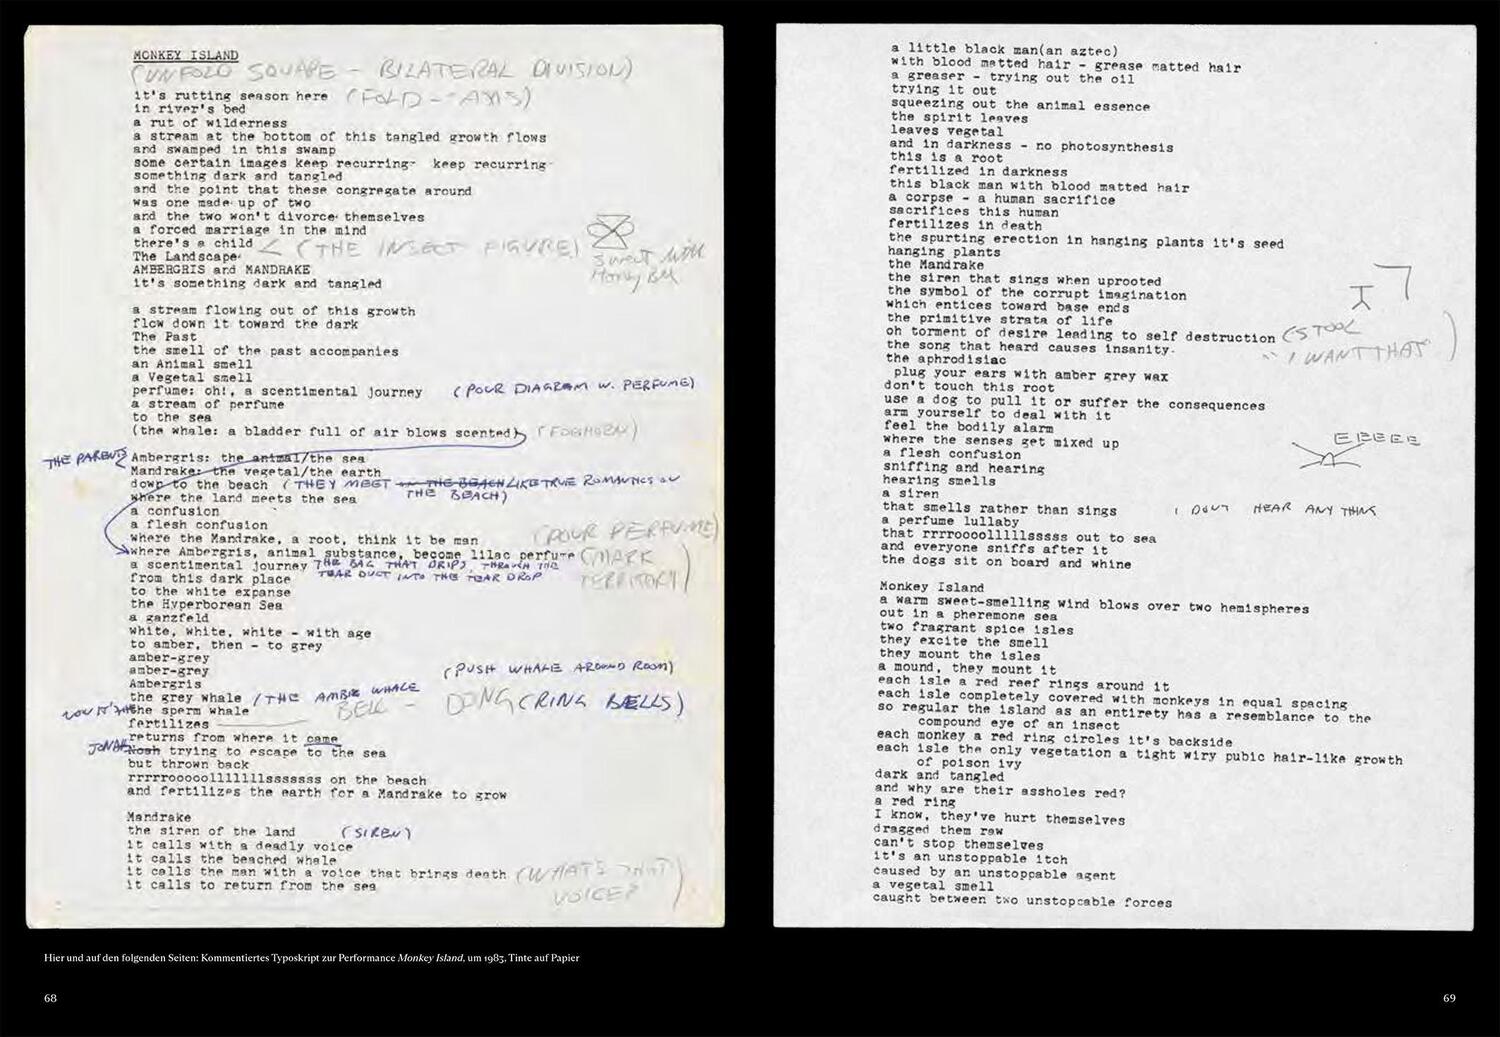 MONKEY ISLAND
(UNFOLD SQUARE - BILATERAL DIVISION)
it's rutting season here (FOLD - AXIS)
in river's bed
a rut of wilderness
a stream at the bottom of this tangled growth flows
and swamped in this swamp
some certain images keep recurring- keep recurring-
something dark and tangled
and the point that these congregate around
was one made up of two
and the two won't divorce themselves
a forced marriage in the mind
there's a child < (THE INSECT FIGURE)
The Landscape
AMBERGRIS and MANDRAKE
it's something dark and tangled
a stream flowing out of this growth
flow down it toward the dark
The Past
the smell of the past accompanies
an Animal smell
a Vegetal smell
perfume: oh!, a scentimental journey (POUR DIAGRAM W. PERFUME)
a stream of perfume
to the sea
(the whale: a bladder full of air blows scented) (FOGHORN)
THE PARENTS Ambergris: the animal/the sea
Mandrake: the vegetal/the earth
down to the beach (THEY MEET IN THE BEACH LIKE TRUE ROMANTICS ON
where the land meets the sea THE BEACH)
a confusion
a flesh confusion
where the Mandrake, a root, think it be man (POUR PERFUME)
where Ambergris, animal substance, become lilac perfume (MARK
a scentimental journey THE BAG THAT DRIPS, THROUGH THE TERRITORY)
from this dark place TEAR DUCT INTO THE TEAR DROP
to the white expanse
the Hyperborean Sea
a ganzfeld
white, white, white - with age
to amber, then - to grey
amber-grey
amber-grey (PUSH WHALE AROUND ROOM)
Ambergris
the grey whale (THE WHALE
NOW IT'S the sperm whale BELL - DONG (RING BELLS)
fertilizes
returns from where it came
JONAH Noah trying to escape to the sea
but thrown back
rrrrrooooollllllllsssssss on the beach
and fertilizes the earth for a Mandrake to grow
Mandrake
the siren of the land (SIREN)
it calls with a deadly voice
it calls the beached whale
it calls the man with a voice that brings death (WHATS THAT
it calls to return from the sea VOICE?)
a little black man(an aztec)
with blood matted hair - grease matted hair
a greaser - trying out the oil
trying it out
squeezing out the animal essence
the spirit leaves
leaves vegetal
and in darkness - no photosynthesis
this is a root
fertilized in darkness
this black man with blood matted hair
a corpse - a human sacrifice
sacrifices this human
fertilizes in death
the spurting erection in hanging plants it's seed
hanging plants
the Mandrake
the siren that sings when uprooted
the symbol of the corrupt imagination
which entices toward base ends
the primitive strata of life
oh torment of desire leading to self destruction (STOOL
the song that heard causes insanity. "I WANT THAT")
the aphrodisiac
plug your ears with amber grey wax
don't touch this root
use a dog to pull it or suffer the consequences
arm yourself to deal with it
feel the bodily alarm
where the senses get mixed up EEEEE
a flesh confusion
sniffing and hearing
hearing smells
a siren
that smells rather than sings I DON'T HEAR ANY THING
a perfume lullaby
that rrrroooolllllsssss out to sea
and everyone sniffs after it
the dogs sit on board and whine
Monkey Island
a warm sweet-smelling wind blows over two hemispheres
out in a pheremone sea
two fragrant spice isles
they excite the smell
they mount the isles
a mound, they mount it
each isle a red reef rings around it
each isle completely covered with monkeys in equal spacing
so regular the island as an entirety has a resemblance to the
compound eye of an insect
each monkey a red ring circles it's backside
each isle the only vegetation a tight wiry pubic hair-like growth
of poison ivy
dark and tangled
and why are their assholes red?
a red ring
I know, they've hurt themselves
dragged them raw
can't stop themselves
it's an unstoppable itch
caused by an unstoppable agent
a vegetal smell
caught between two unstoppable forces
Hier und auf den folgenden Seiten: Kommentiertes Typoskript zur Performance Monkey Island, um 1983, Tinte auf Papier
68
69